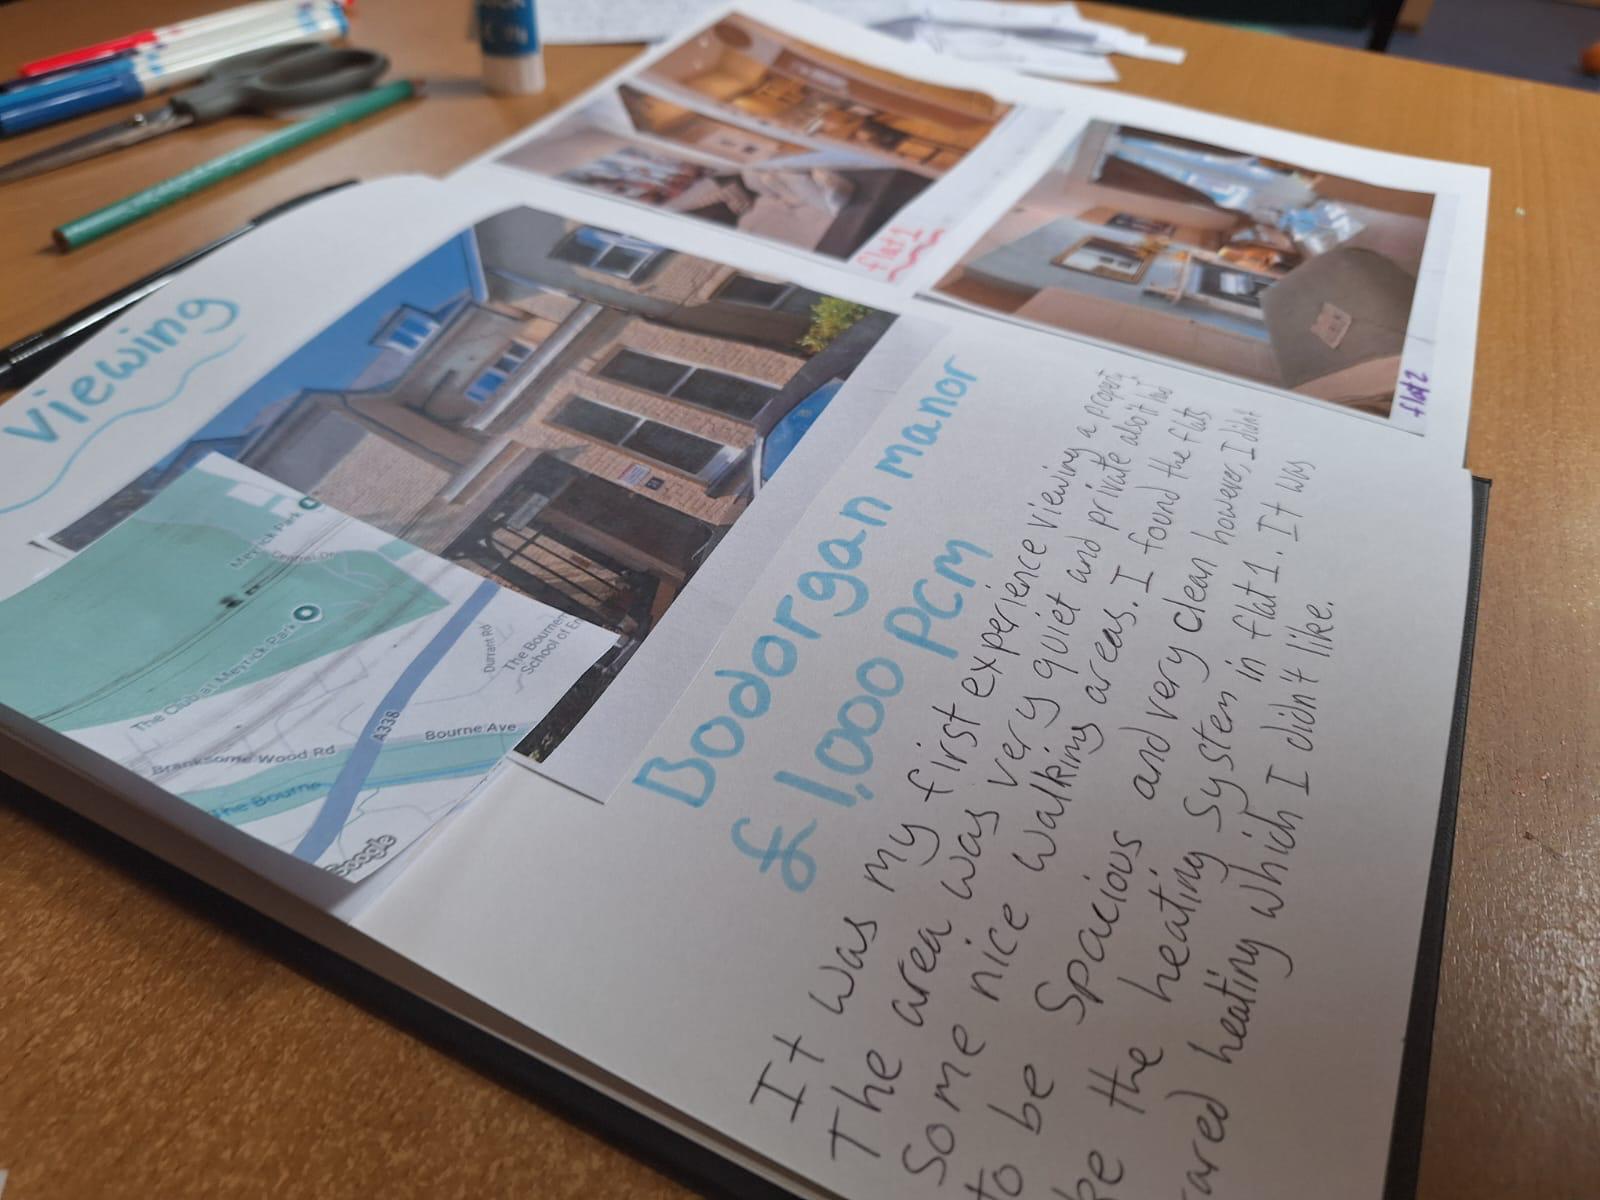 Viewing
flat 1
flat 2
Meyrick Park
Central Dr
The Club at Meyrick Park
Durrant Rd
The Bournem
School of En
A338
Bourne Ave
Branksome Wood Rd
The Bourne
Google
Bodorgan manor
£1,000 PCM
It was my first experience viewing a property
The area was very quiet and private also it had
Some nice walking areas. I found the flats
to be Spacious and very clean however, I didn't
ke the heating System in flat 1. It was
ared heating which I didn't like.